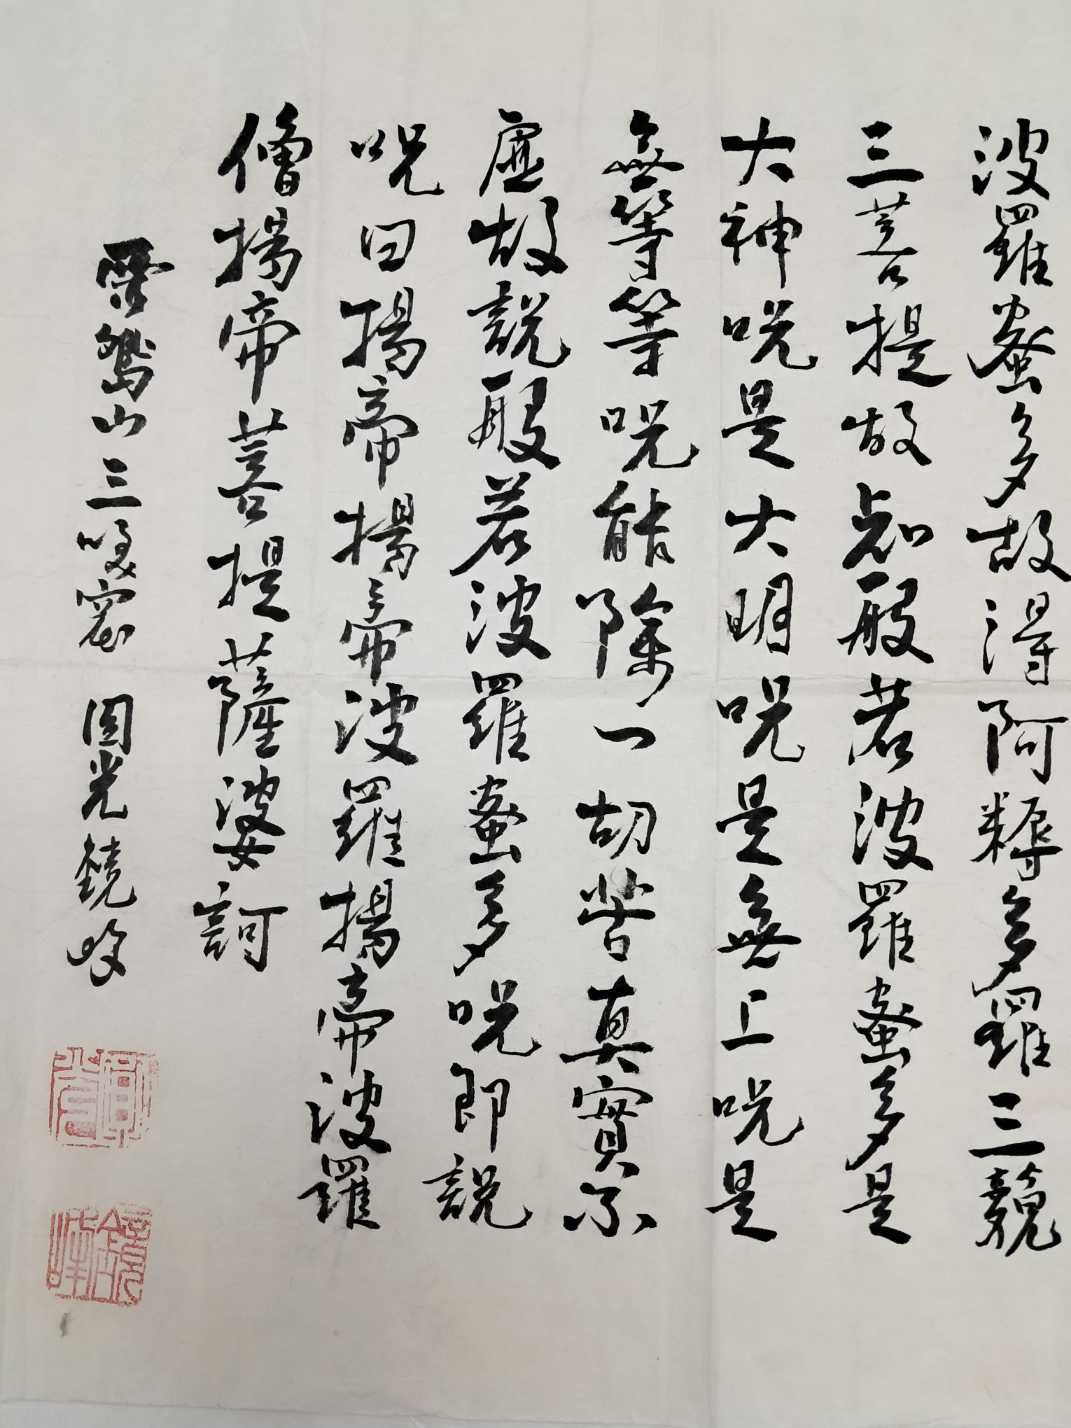 波羅蜜多故得阿耨多羅三藐
三菩提故知般若波羅蜜多是
大神呪是大明呪是無上呪是
無等等呪能除一切苦真實不
虛故說般若波羅蜜多呪即說
呪曰揭帝揭帝波羅揭帝波羅
僧揭帝菩提薩婆訶
山三 光鏡